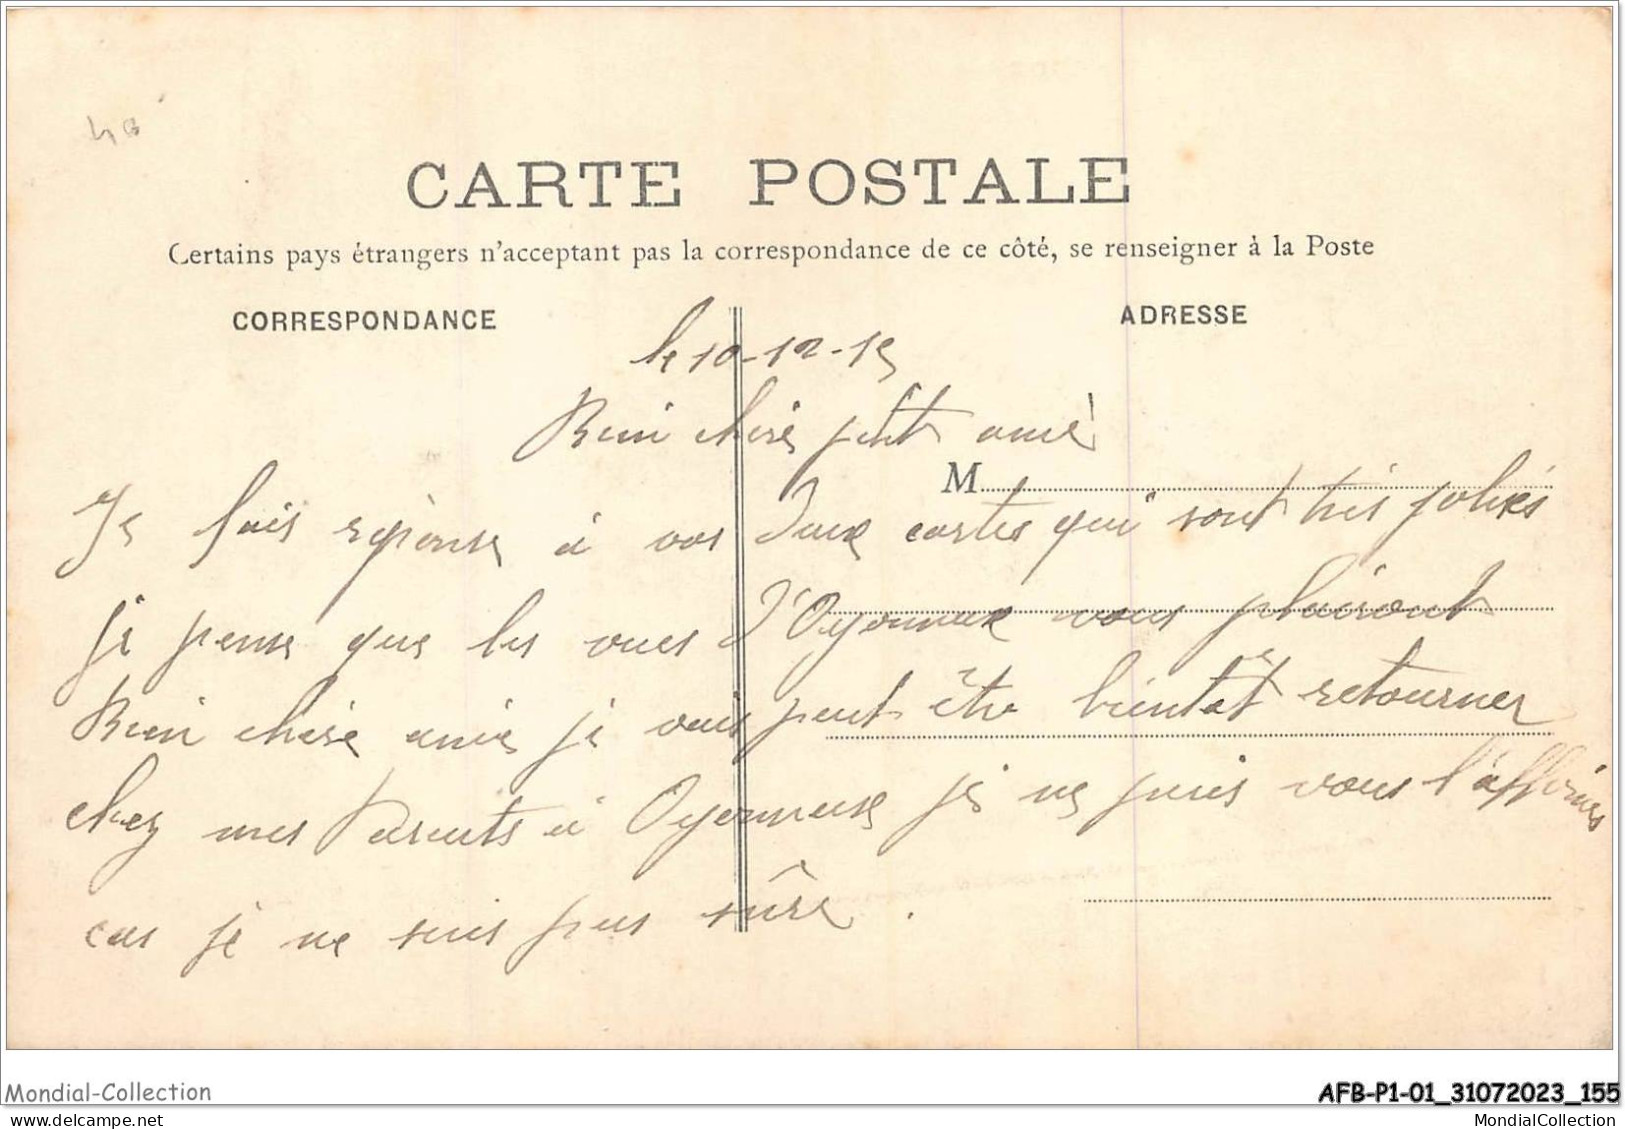 CARTE POSTALE
Certains pays étrangers n'acceptant pas la correspondance de ce côté, se renseigner à la Poste
CORRESPONDANCE
ADRESSE
le 10-12-15
Bien chère petit amie
M
Je fais réponse à vos deux cartes qui sont très jolies
je pense que les vues d'Oyonnax vous plairont
Bien chère amie je vais peut être bientôt retourner
chez mes Parents à Oyonnax je ne puis vous l'affirmer
car je ne suis pas sûre.
Mondial-Collection
AFB-P1-01_31072023_155
MondialCollection